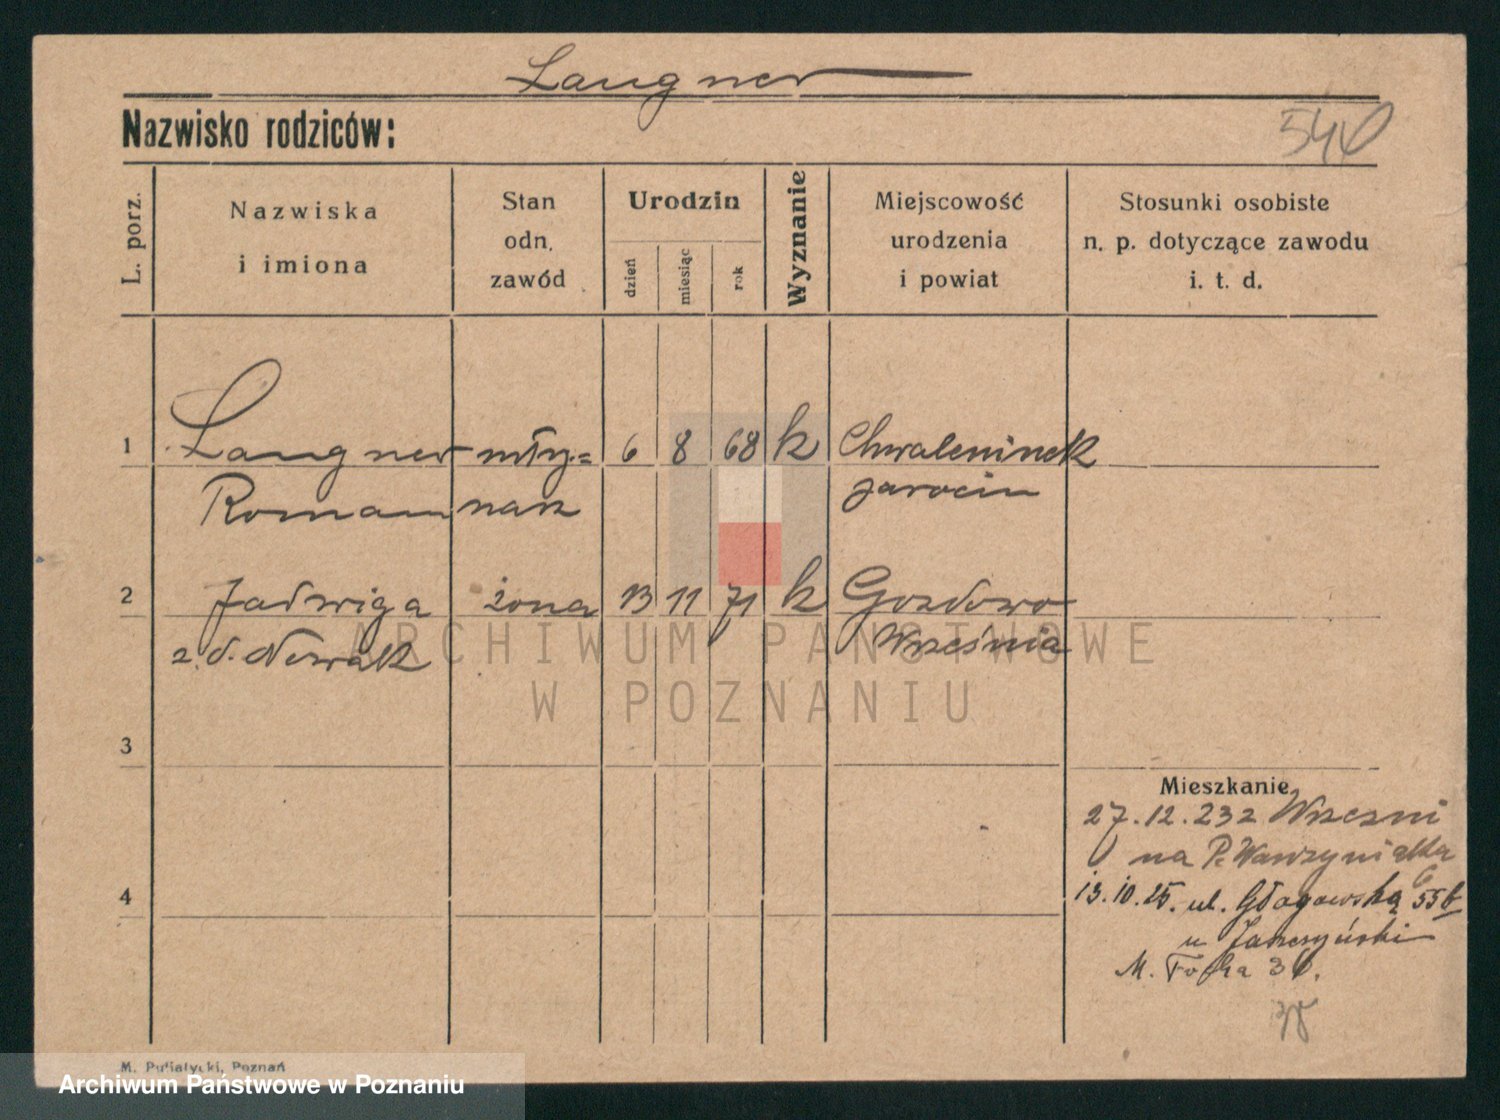 Langner
Nazwisko rodziców:
L. porz.
Nazwiska
i imiona
Stan
odn.
zawód
Urodzin
dzień
miesiąc
rok
Wyznanie
Miejscowość
urodzenia
i powiat
Stosunki osobiste
n. p. dotyczące zawodu
i. t. d.
1 Langner młyn= 6 8 68 k Chwaleninek
Roman narz Jarocin
2 Jadwiga żona 13 11 71 k Gozdowo
z. d. Nowak Września
3
Mieszkanie
27.12.23 z Wrzesni
na P. Wawrzyniaka
6
4
13.10.25. ul. Głogowska 55b
u Janczyński
M. Focha
ARCHIWUM PAŃSTWOWE
W POZNANIU
M. Putiatycki, Poznań
Archiwum Państwowe w Poznaniu